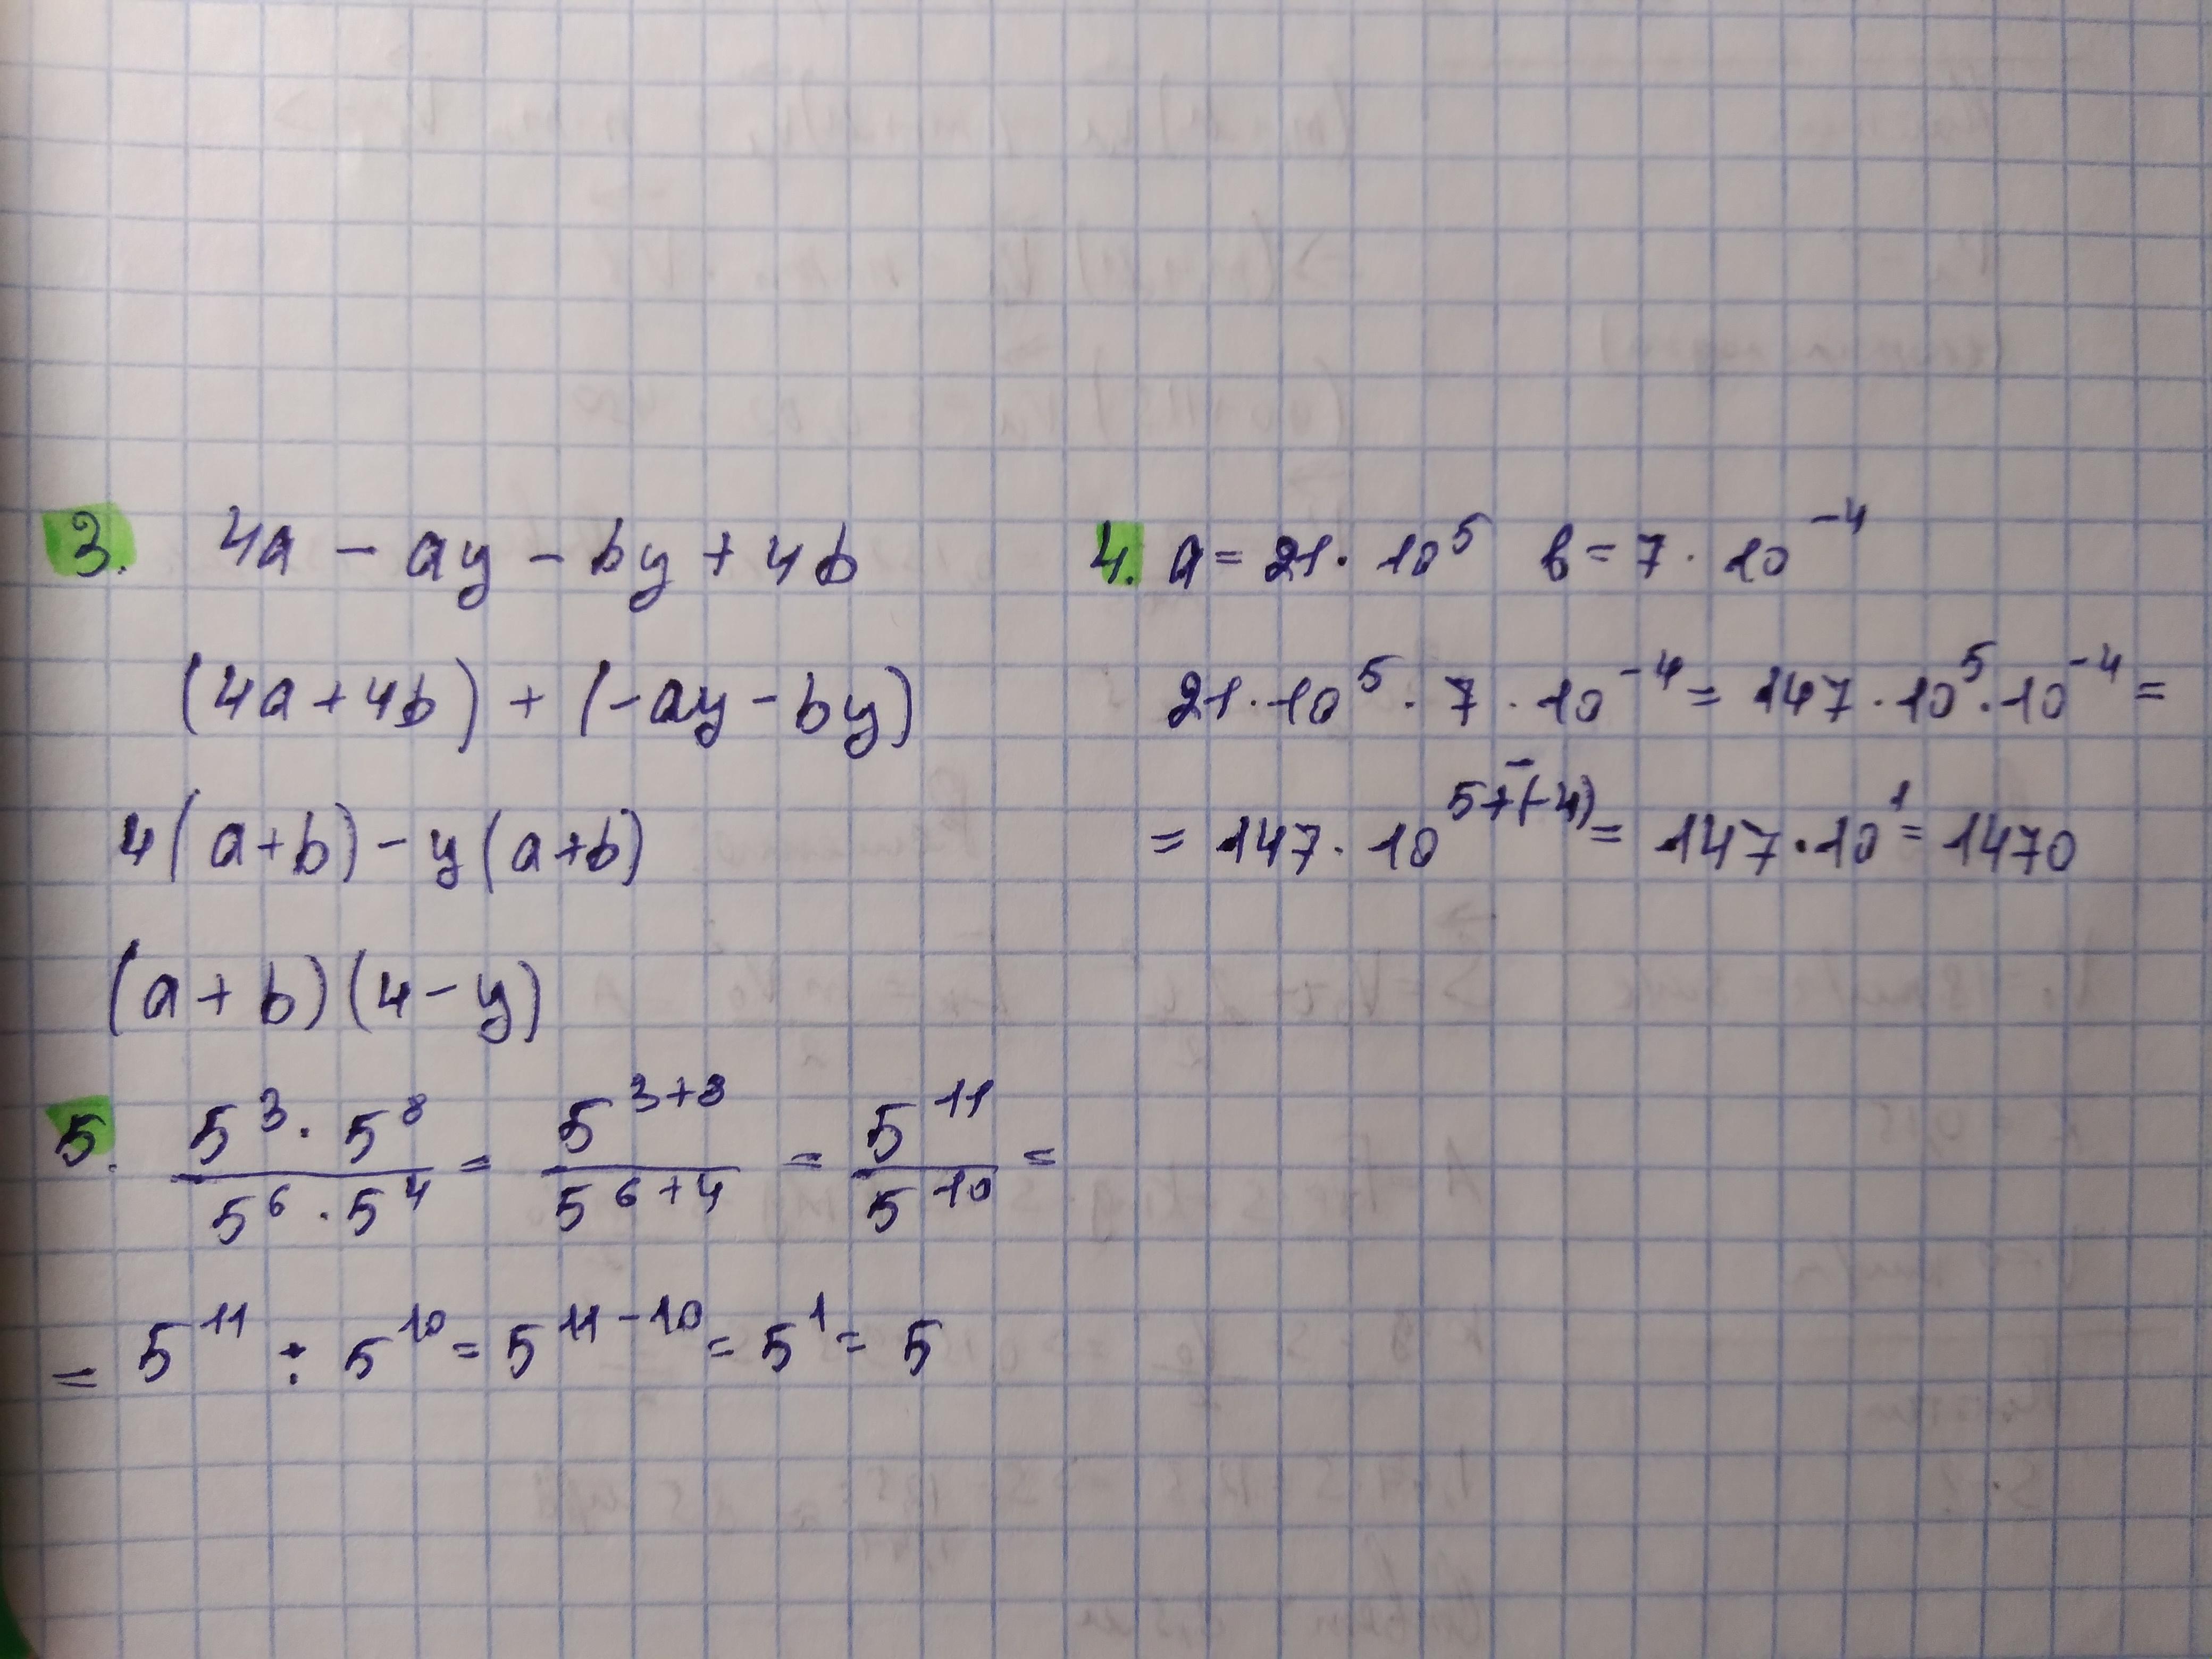 3. 4a - ay - by + 4b
(4a + 4b) + (-ay - by)
4(a+b) - y(a+b)
(a + b)(4 - y)
4. a = 21 · 10^5 b = 7 · 10^-4
21 · 10^5 · 7 · 10^-4 = 147 · 10^5 · 10^-4 =
= 147 · 10^5+(-4) = 147 · 10^1 = 1470
5. 5^3 · 5^8 / 5^6 · 5^4 = 5^3+8 / 5^6+4 = 5^11 / 5^10 =
= 5^11 ÷ 5^10 = 5^11-10 = 5^1 = 5